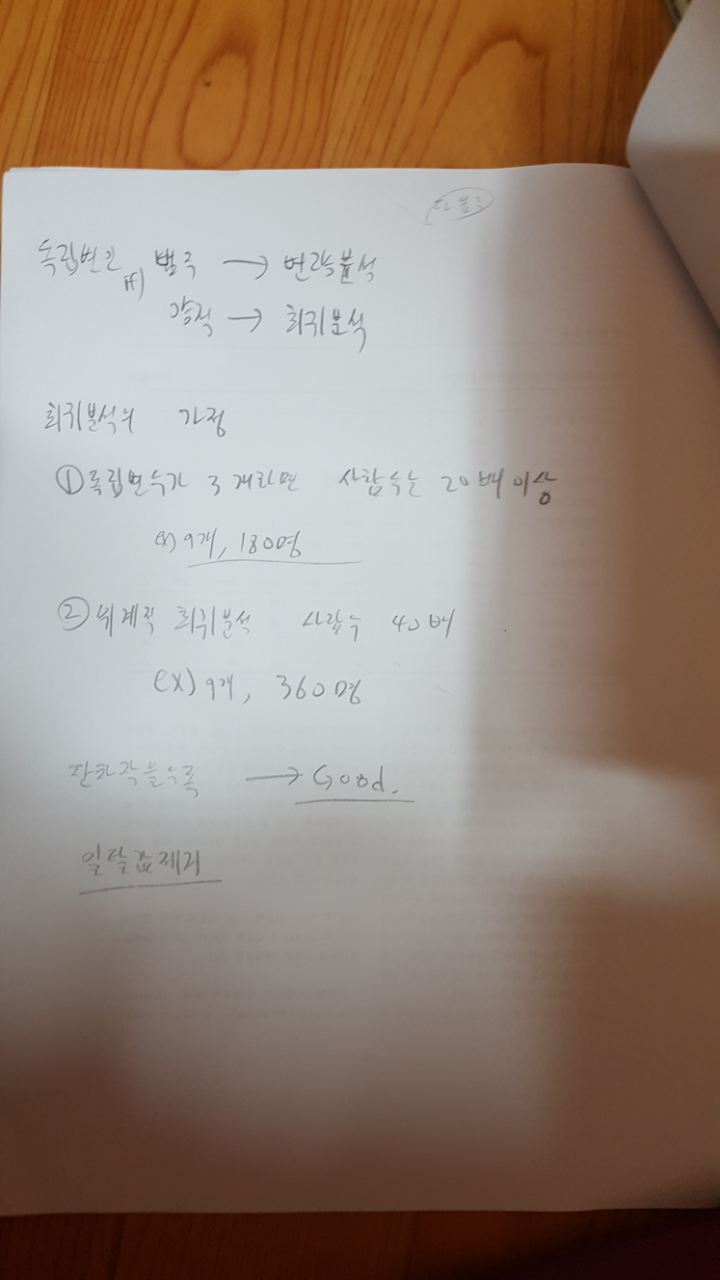 독립변인 if) 범주 → 변량분석
양적 → 회귀분석
회귀분석의 가정
① 독립변수가 3개라면 사람수는 20배 이상
ex) 9개, 180명
② 위계적 회귀분석 사람수 40배
ex) 9개, 360명
잔차 작을수록 → Good.
일탈값 제거